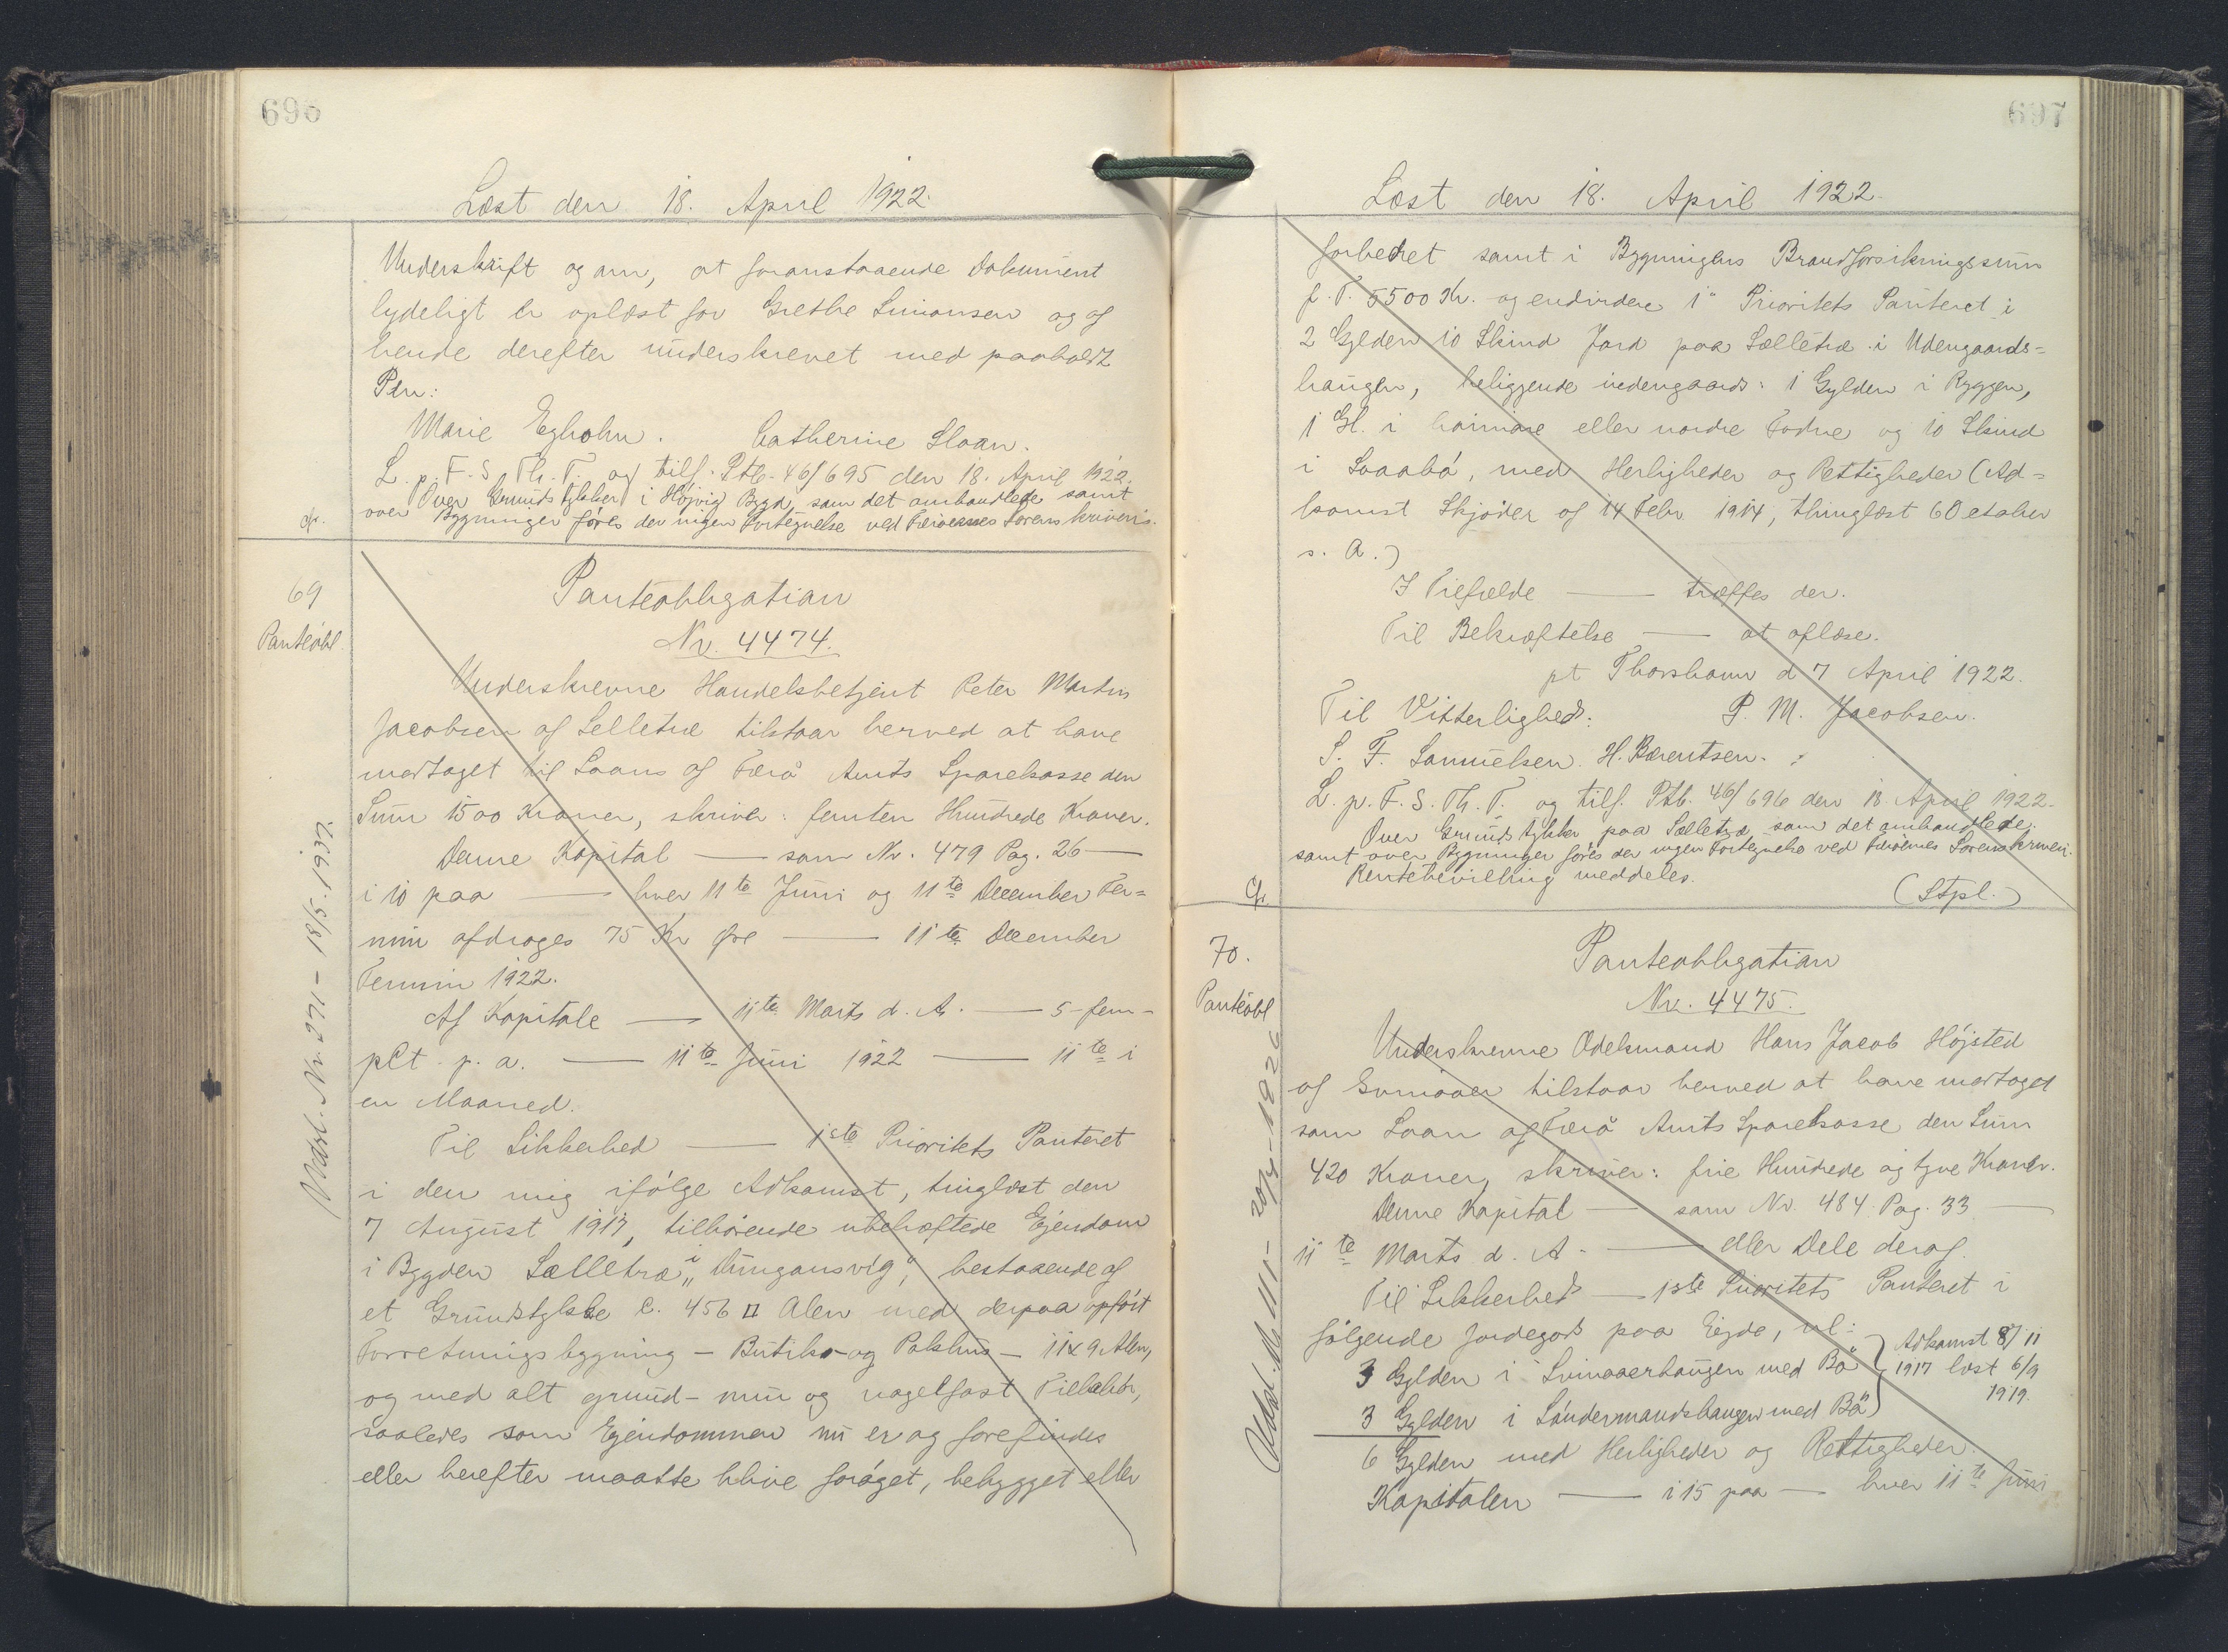 696
Læst den 18. April 1922.
Underskrift og om, at foranstaaende Dokument
lydeligt er oplæst for Grethe Simonsen og af
hende derefter underskrevet med paaholdt
Pen:
Marie Egholm. Catherine Sloan.
L. p. F. S. Th. T. og tilf. Ptb. 46/695 den 18. April 1922.
Over Grundstykker i Højvig Bygd, som det ombandlede samt
over Bygninger føres der ingen Fortegnelse ved Færøernes Sorenskriveri.
cfr.
69
Panteobl.
Panteobligation
Nr. 4474.
Underskrevne Handelsbetjent Peter Martin
Jacobsen af Selletræ tilstaar herved at have
modtaget til Laans af Færø Amts Sparekasse den
Sum 1500 Kroner, skriver: femten Hundrede Kroner.
Denne Kapital — som Nr. 479 Pag. 26 —
i 10 paa — hver 11te Juni og 11te December Ter=
min afdrages 75 Kr Øre — 11te December
Termin 1922.
Af Kapitale — 11te Marts d. A. — 5 - fem -
pCt. p. a. — 11te Juni 1922 — 11te i
en Maaned.
Til Sikkerhed — 1ste Prioritets Panteret
i den mig ifølge Adkomst, tinglæst den
7 August 1917, tilhørende ubehæftede Ejendom
i Bygden Sælletræ, i "Dungansvig", bestaaende af
et Grundstykke c. 456 □ Alen med derpaa opført
Forretningsbygning - Butiks- og Pakhus - 11x9 Alen,
og med alt grund- mur og nagelfast Tilbehør,
saaledes som Ejendommen nu er og forefindes
eller herefter maatte blive forøget, bebygget eller
Udsl. Nr. 271 - 18/5. 1932.
697
Læst den 18. April 1922.
forbedret samt i Bygningens Brandforsikringssum
f. T. 5500 Kr. og endvidere 1" Prioritets Panteret i
2 Gylden 10 Skind Jord paa Sælletræ i Udengaards=
haugen, beliggende indengaards: 1 Gylden i Ryggen,
1 Gl. i hoimare eller nordre Todne og 10 Skind
i Svaabø, med Herligheder og Rettigheder (Ad=
komst Skjøder af 14 Febr 1914, thinglæst 6 October
s. A.)
I Tilfælde — træffes der.
Til Bekræftelse — at aflæse.
pt Thorshavn d 7 April 1922.
Til Vitterlighed: P. M. Jacobsen.
S. F. Samuelsen. H. Bærentsen.
L. p. F. S. Th. T. og tilf. Ptb. 46/696 den 18. April 1922.
Over Grundstykker paa Sælletræ som det ombandlede
samt over Bygninger føres der ingen Fortegnelse ved Færøernes Sorenskriveri.
Rentebevilling meddeles.
(Stpl.)
Cfr
70.
Panteobl
Panteobligation
Nr. 4475.
Underskrevne Odelsmand Hans Jacob Højsted
af Svinaaer tilstaar herved at have modtaget
som Laan af Færø Amts Sparekasse den Sum
420 Kroner, skriver: fire Hundrede og tyve Kroner.
Denne Kapital — som Nr. 484 Pag. 33 —
11te Marts d. A. — eller Dele deraf.
Til Sikkerhed — 1ste Prioritets Panteret i
følgende Jordegods paa Ejde, nl:
3 Gylden i Svinaaerhaugen med Bø } Adkomst 8/11
3 Gylden i Søndermandshaugen med Bø } 1917 læst 6/9
1919.
6 Gylden med Herligheder og Rettigheder.
Kapitalen — i 15 paa — hver 11te Juni